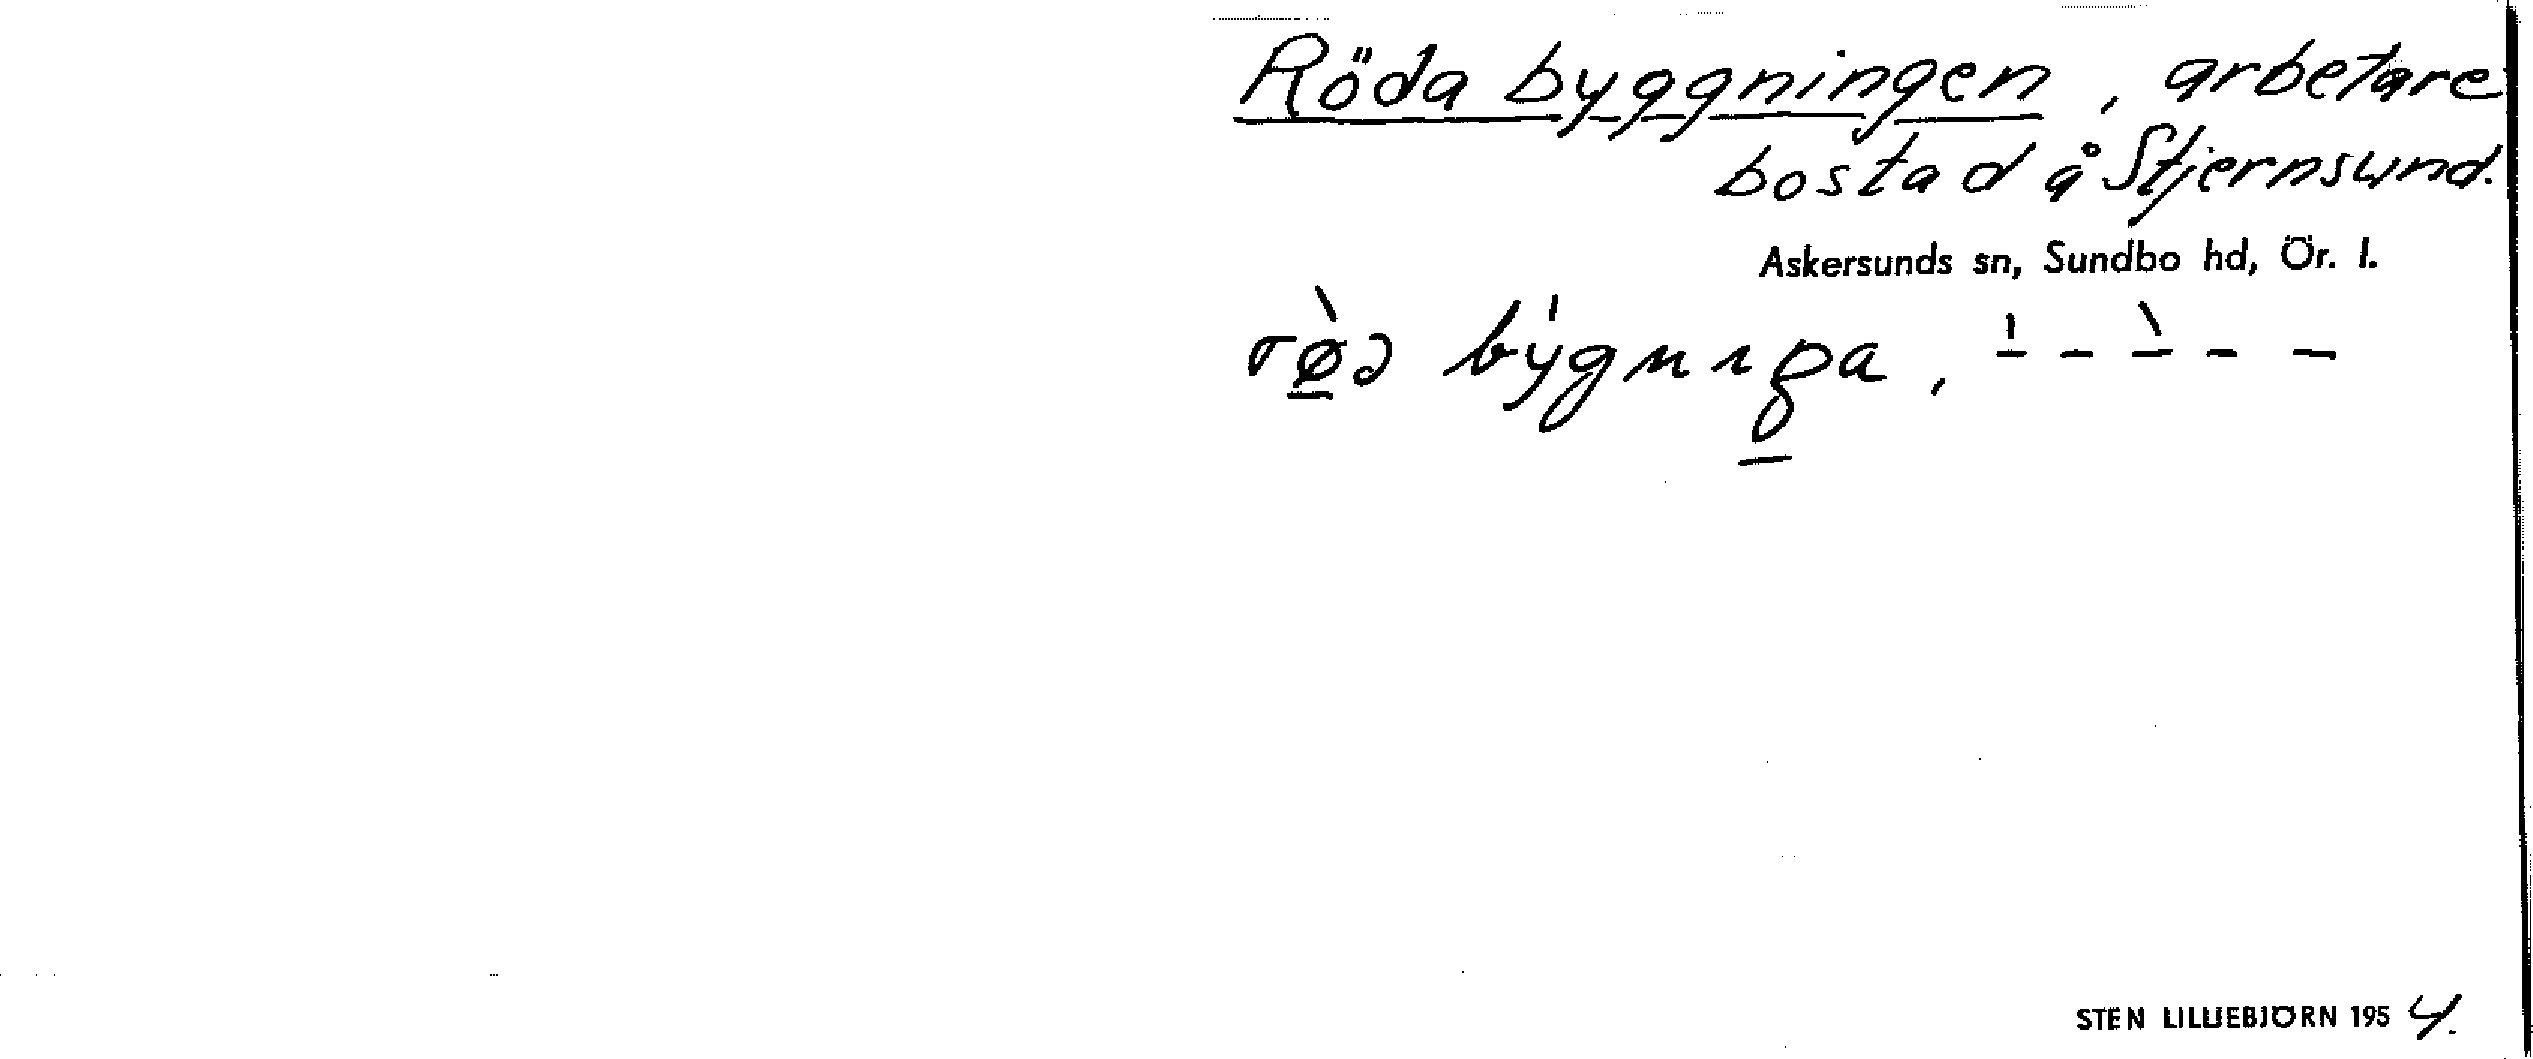 Röda byggningen, arbetare
bostad å Stjernsund.
Askersunds sn, Sundbo hd, Ör. l.
STEN LILLIEBJÖRN 1954.